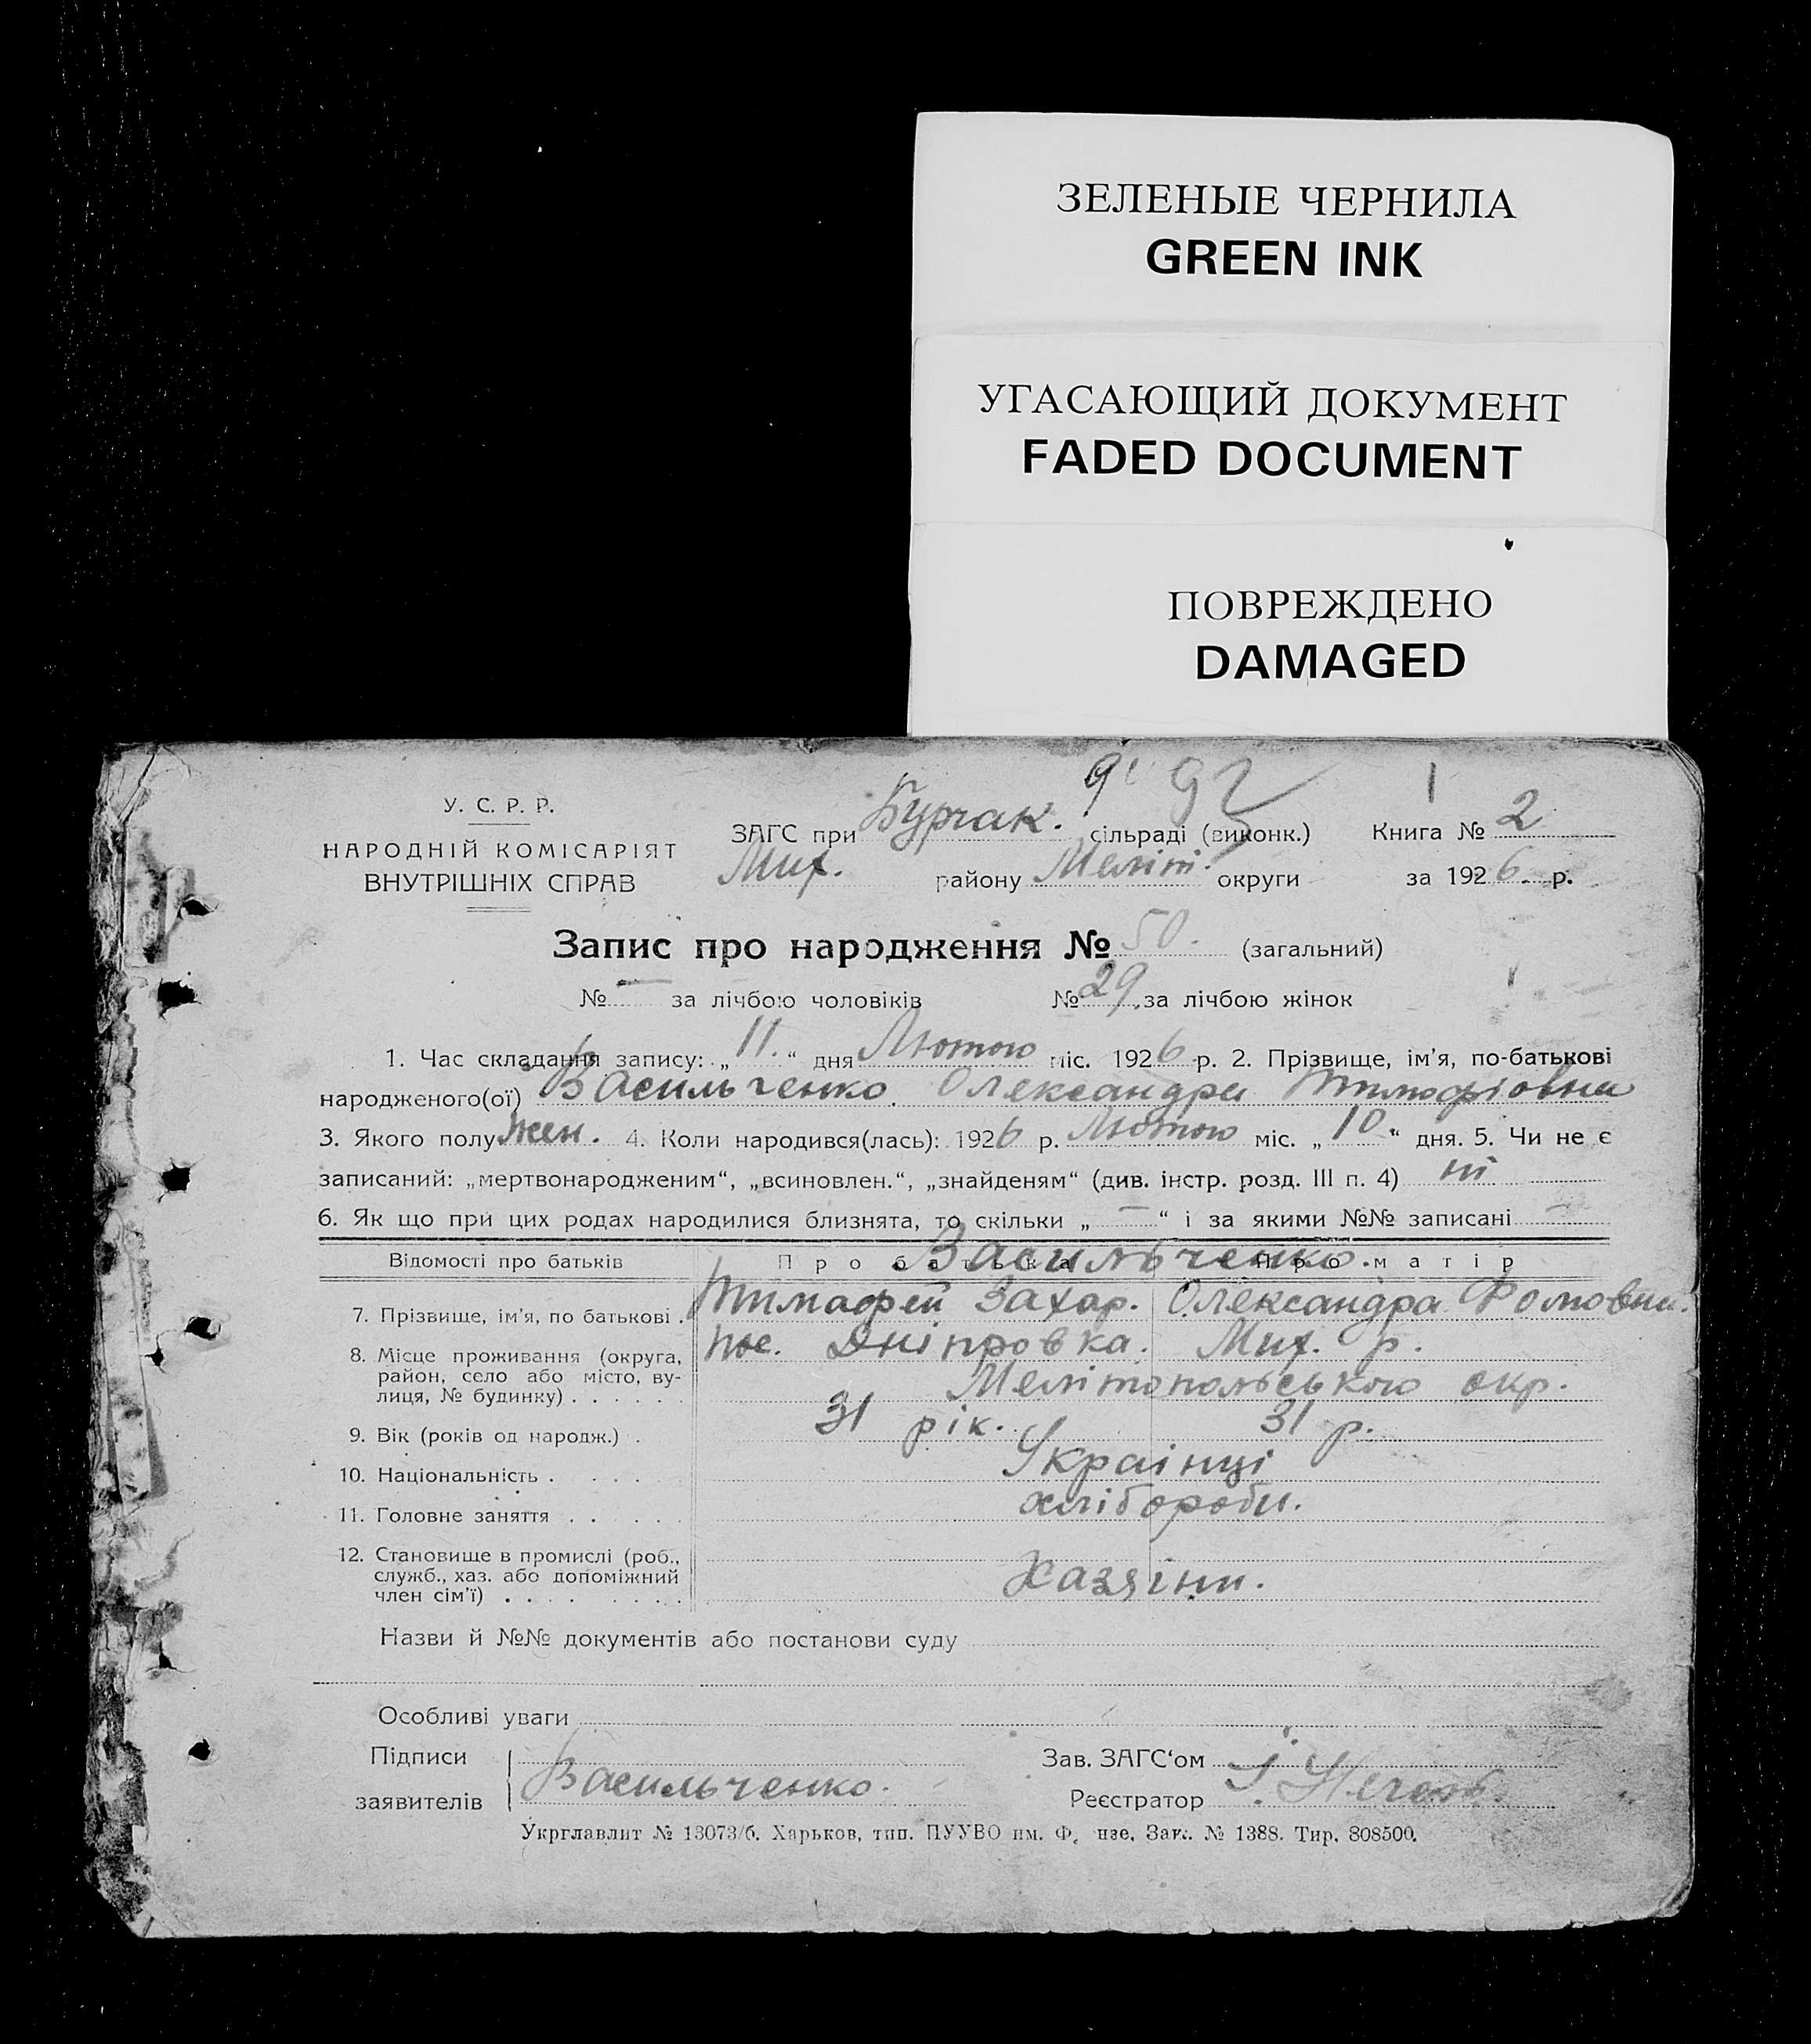 ЗЕЛЕНЫЕ ЧЕРНИЛА
GREEN INK
УГАСАЮЩИЙ ДОКУМЕНТ
FADED DOCUMENT
ПОВРЕЖДЕНО
DAMAGED
92 1
У. С. Р. Р.
НАРОДНІЙ КОМІСАРІЯТ
ВНУТРІШНІХ СПРАВ
ЗАГС при Бурчак. сільраді (виконк.) Книга № 2
Мих. району Меліт. округи за 1926 р.
Запис про народження № 50. (загальний)
№ — за лічбою чоловіків № 29. за лічбою жінок
1. Час складання запису: „11.“ дня Лютого міс. 1926 р. 2. Прізвище, ім’я, по-батькові
народженого(ої) Васильченко. Олександра Тимофіовна
3. Якого полу жен. 4. Коли народився(лась): 1926 р. Лютого міс. „10“ дня. 5. Чи не є
записаний: „мертвонародженим“, „всиновлен.“, „знайденям“ (див. інстр. розд. III п. 4) ні
6. Як що при цих родах народилися близнята, то скільки „—“ і за якими №№ записані —
Відомості про батьків Про батька Про матір
Васильченко.
7. Прізвище, ім’я, по батькові . Тимафей Захар. Олександра Фомовна.
8. Місце проживання (округа, пос. Дніпровка. Мих. р.
район, село або місто, ву-
лиця, № будинку) . . . . . . Мелітопольського окр.
9. Вік (років од народж.) . 31 рік. 31 р.
10. Національність . . . . Українці
11. Головне заняття . . . . . хлібороби.
12. Становище в промислі (роб.,
служб., хаз. або допоміжний Хазяіни.
член сім’ї) . . . . . . . .
Назви й №№ документів або постанови суду
Особливі уваги
Підписи Зав. ЗАГС‘ом
заявителів Васильченко. Реєстратор
Укрглавлит № 13073/б. Харьков, тип. ПУУВО им. Ф. нзе. Зак. № 1388. Тир. 808500.